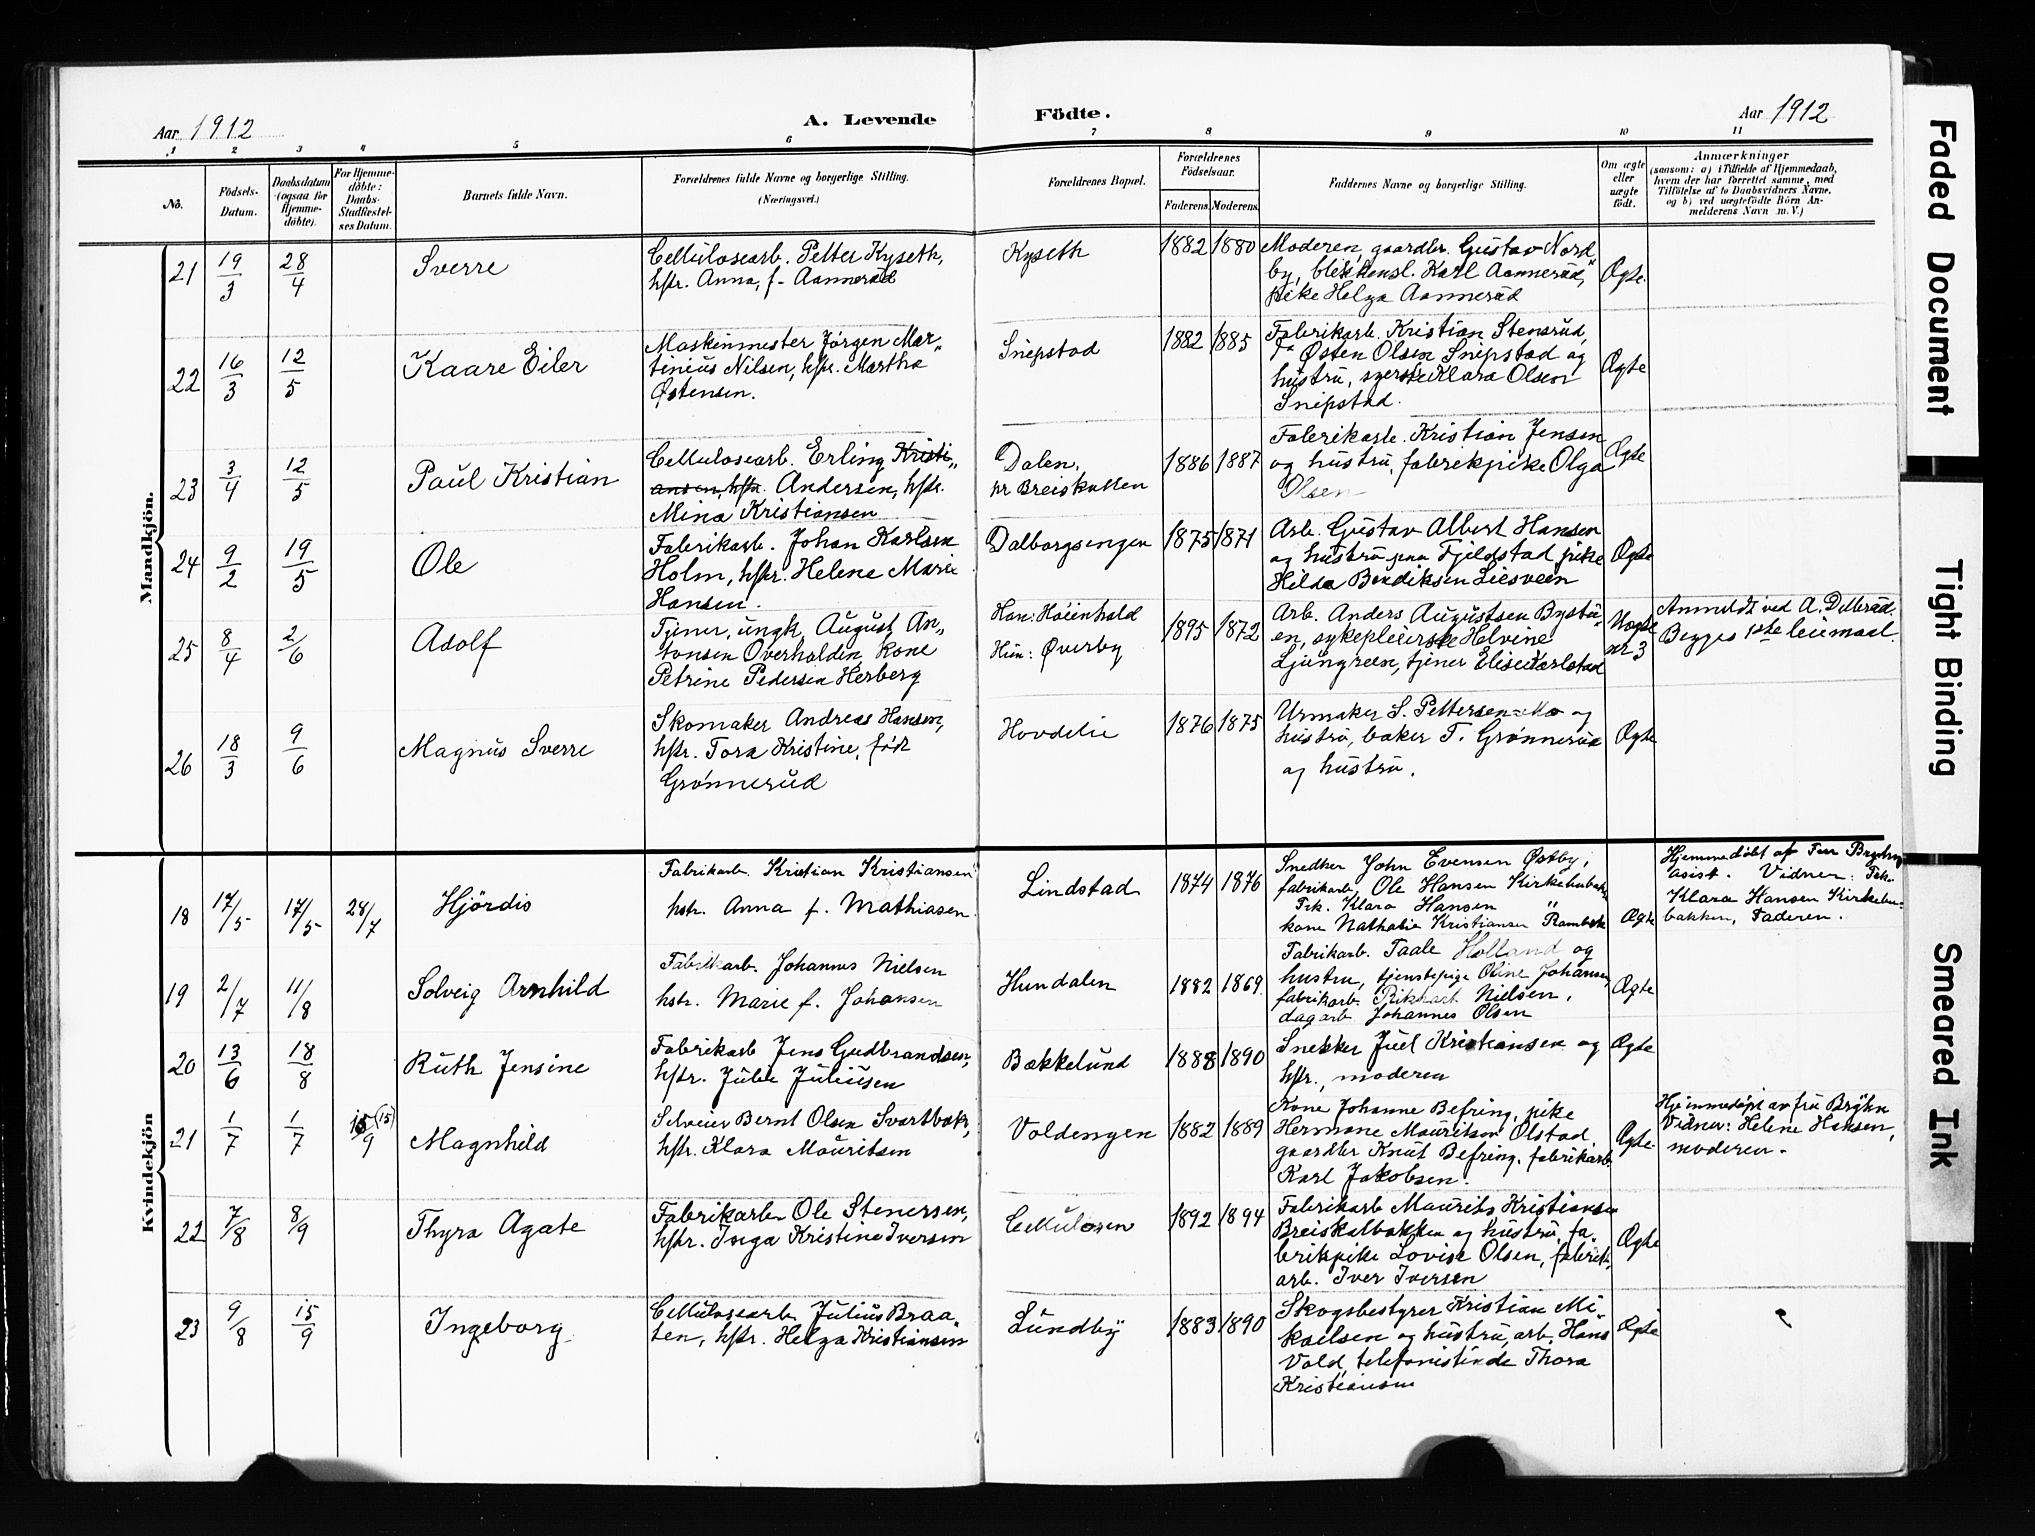 Aar 1912
A. Levende
Födte.
Aar 1912
1 2 3 4 5 6 7 8 9 10 11
No.
Födsels-
Datum.
Daabsdatum
(ogsaa for
Hjemme-
döbte).
For Hjemme-
döbte:
Daabs-
Stadfæstel-
ses Datum.
Barnets fulde Navn.
Forældrenes fulde Navne og borgerlige Stilling.
(Næringsvei.)
Forældrenes Bopæl.
Forældrenes
Födselsaar.
Faderens. Moderens.
Faddernes Navne og borgerlige Stilling.
Om ægte
eller
uægte
födt.
Anmærkninger
(saasom: a) i Tilfælde af Hjemmedaab,
hvem der har forrettet samme, med
Tilföielse af to Daabsvidners Navne,
og b) ved uægtefödte Börn An-
melderens Navn m. V.)
Mandkjön.
21 19/3 28/4 Sverre
Cellulosearb. Petter Kyseth,
hstr. Anna, f. Aannerud
Kyseth 1882 1880
Moderen, gaardbr. Gustav Nord„
by, blikkensl. Karl Aannerud,
pike Helga Aannerud
Ægte.
22 16/3 12/5 Kaare Eiler
Maskinmester Jörgen Mar„
tinius Nilsen, hstr. Martha
Østensen.
Snipstad 1882 1885
Fabrikarb. Kristian Stensrud,
Østen Olsen Snipstad og
hustru, syerske Klara Olsen
Snipstad.
Ægte
23 3/4 12/5 Paul Kristian
Cellulosearb. Erling Kristi„
ansen, hstr. Andersen, hstr.
Mina Kristiansen
Dalen,
pr Breiskallen
1886 1887
Fabrikarb. Kristian Jensen
og hustru, fabrikpike Olga
Olsen
Ægte
24 9/2 19/5 Ole
Fabrikarb. Johan Karlsen
Holm, hstr. Helene Marie
Hansen.
Dalborgsengen 1875 1871
Arb. Gustav Albert Hansen
og hustru paa Fjeldstad pike
Hilda Bendiksen Liesveen
Ægte
25 8/4 2/6 Adolf
Tjener, ungk. August An„
tonsen Overhalden, kone
Petrine Pedersen Herberg
Han: Höienhald
Hun: Øverby
1895 1872
Arb. Anders Augustsen Bystu„
en, sykepleierske Helvine
Ljungreen, tjener Elise Karlstad
Uægte
nr 3
Anmeldt ved A. Dellerud.
Begges 1ste leiermaal.
26 18/3 9/6 Magnus Sverre
Skomaker Andreas Hansen,
hstr. Tora Kristine, född
Grønnerud
Hovdelie 1876 1875
Urmaker S. Pettersen Mo og
hustru, baker T. Grønnerud
og hustru.
Ægte
Kvindekjön
18 17/5 17/5 28/7 Hjördis
Fabrikarb. Kristian Kristiansen
hstr. Anna f. Mathiasen
Lindstad 1874 1876
Snedker John Evensen Østby,
fabrikarb. Ole Hansen Kirkebubakk.
Frk. Klara Hansen "
kone Nathalie Kristiansen Rambek
Ægte
Hjemmedöbt af Fru Bryhn
asist. Vidner: Frk.
Klara Hansen Kirkebu-
bakken, Faderen.
19 2/7 11/8 Solveig Arnhild
Fabrikarb. Johannes Nielsen
hstr. Marie f. Johansen
Hundalen 1882 1869
Fabrikarb. Taale Holland og
hustru, tjenstepige Oline Johansen,
fabrikarb. Rikhart Nielsen,
dagarb. Johannes Olsen
Ægte
20 13/6 18/8 Ruth Jensine
Fabrikarb Jens Gudbrandsen,
hstr. Julie Juliusen
Bækkelund 1888 1890
Snekker Juel Kristiansen og
hstr., moderen
Ægte
21 1/7 1/7 15/9 (15) Magnhild
Selveier Bernt Olsen Svartbæk,
hstr. Klara Mauritsen
Voldengen 1882 1889
Kone Johanne Befring, pike
Hermane Mauritsen Olstad,
gaardbr Knut Befring, fabrikarb.
Karl Jakobsen.
Ægte
Hjemmedöpt av fru Bryhn
Vidner: Helene Hansen,
moderen.
22 7/8 8/9 Thyra Agate
Fabrikarb Ole Stenersen,
hstr. Inga Kristine Iversen
Cellulosen 1892 1894
Fabrikarb Maurits Kristiansen
Breiskalbakken og hustru, fa„
brikpike Lovise Olsen, fabrik„
arb. Iver Iversen
Ægte
23 9/8 15/9 Ingeborg
Cellulosearb. Julius Braa„
ten, hstr. Helga Kristiansen
Lundby 1883 1890
Skogsbestyrer Kristian Mi„
kaelsen og hustru, arb. Hans
Vold, telefonistinde Thora
Kristiansen
Ægte
Faded Document
Tight Binding
Smeared Ink